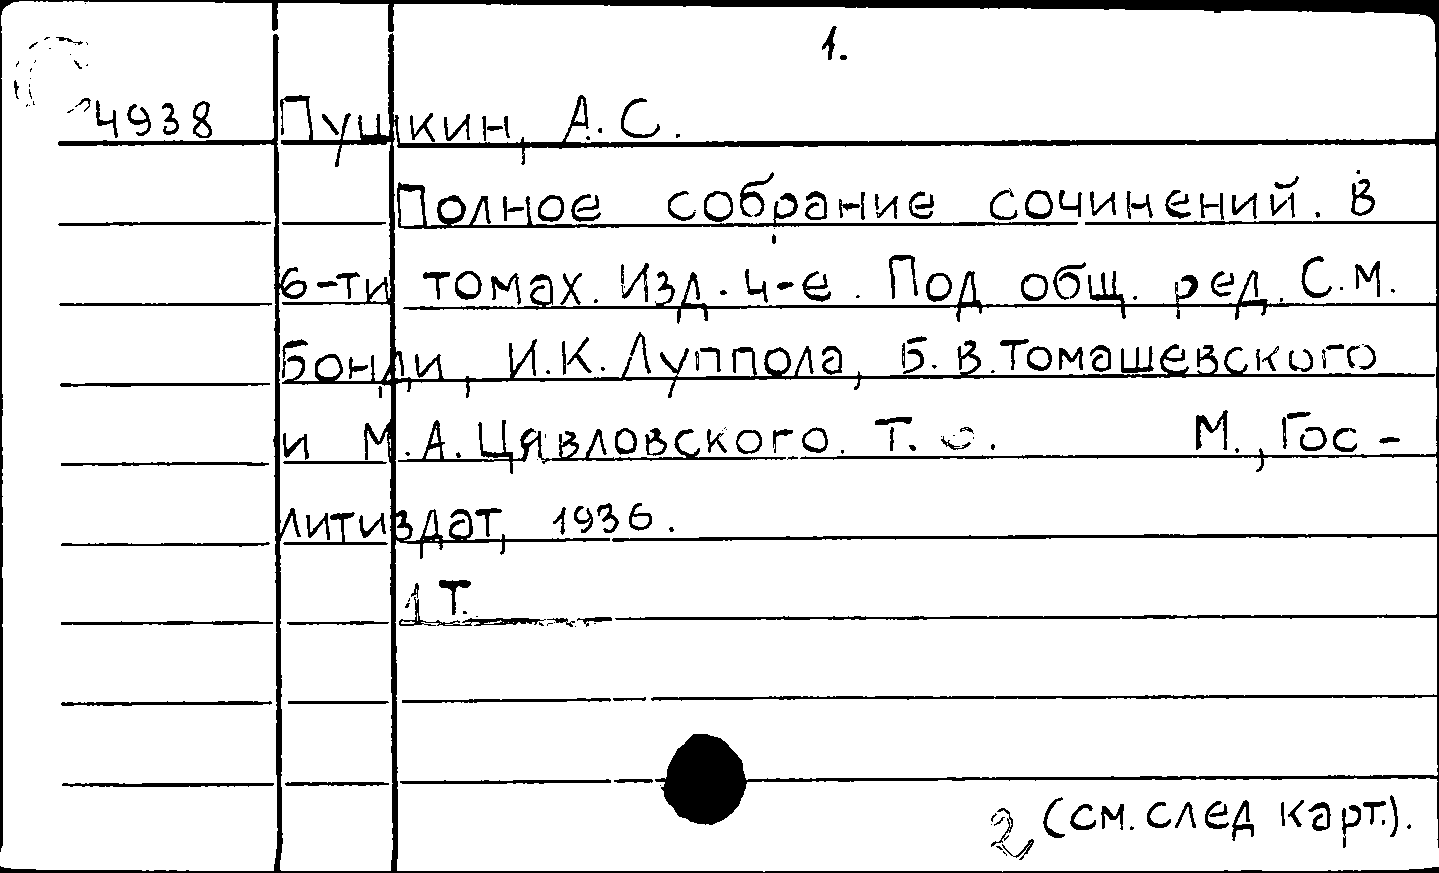 1.
4938 Пушкин, А.С.
Полное собрание сочинений. В
6-ти томах. Изд. 4-е. Под общ. ред. С.М.
Бонди, И.К. Луппола, Б.В. Томашевского
и М.А. Цявловского. Т. М., Гос-
литиздат, 1936.
1 Т.
2 (см. след карт.).